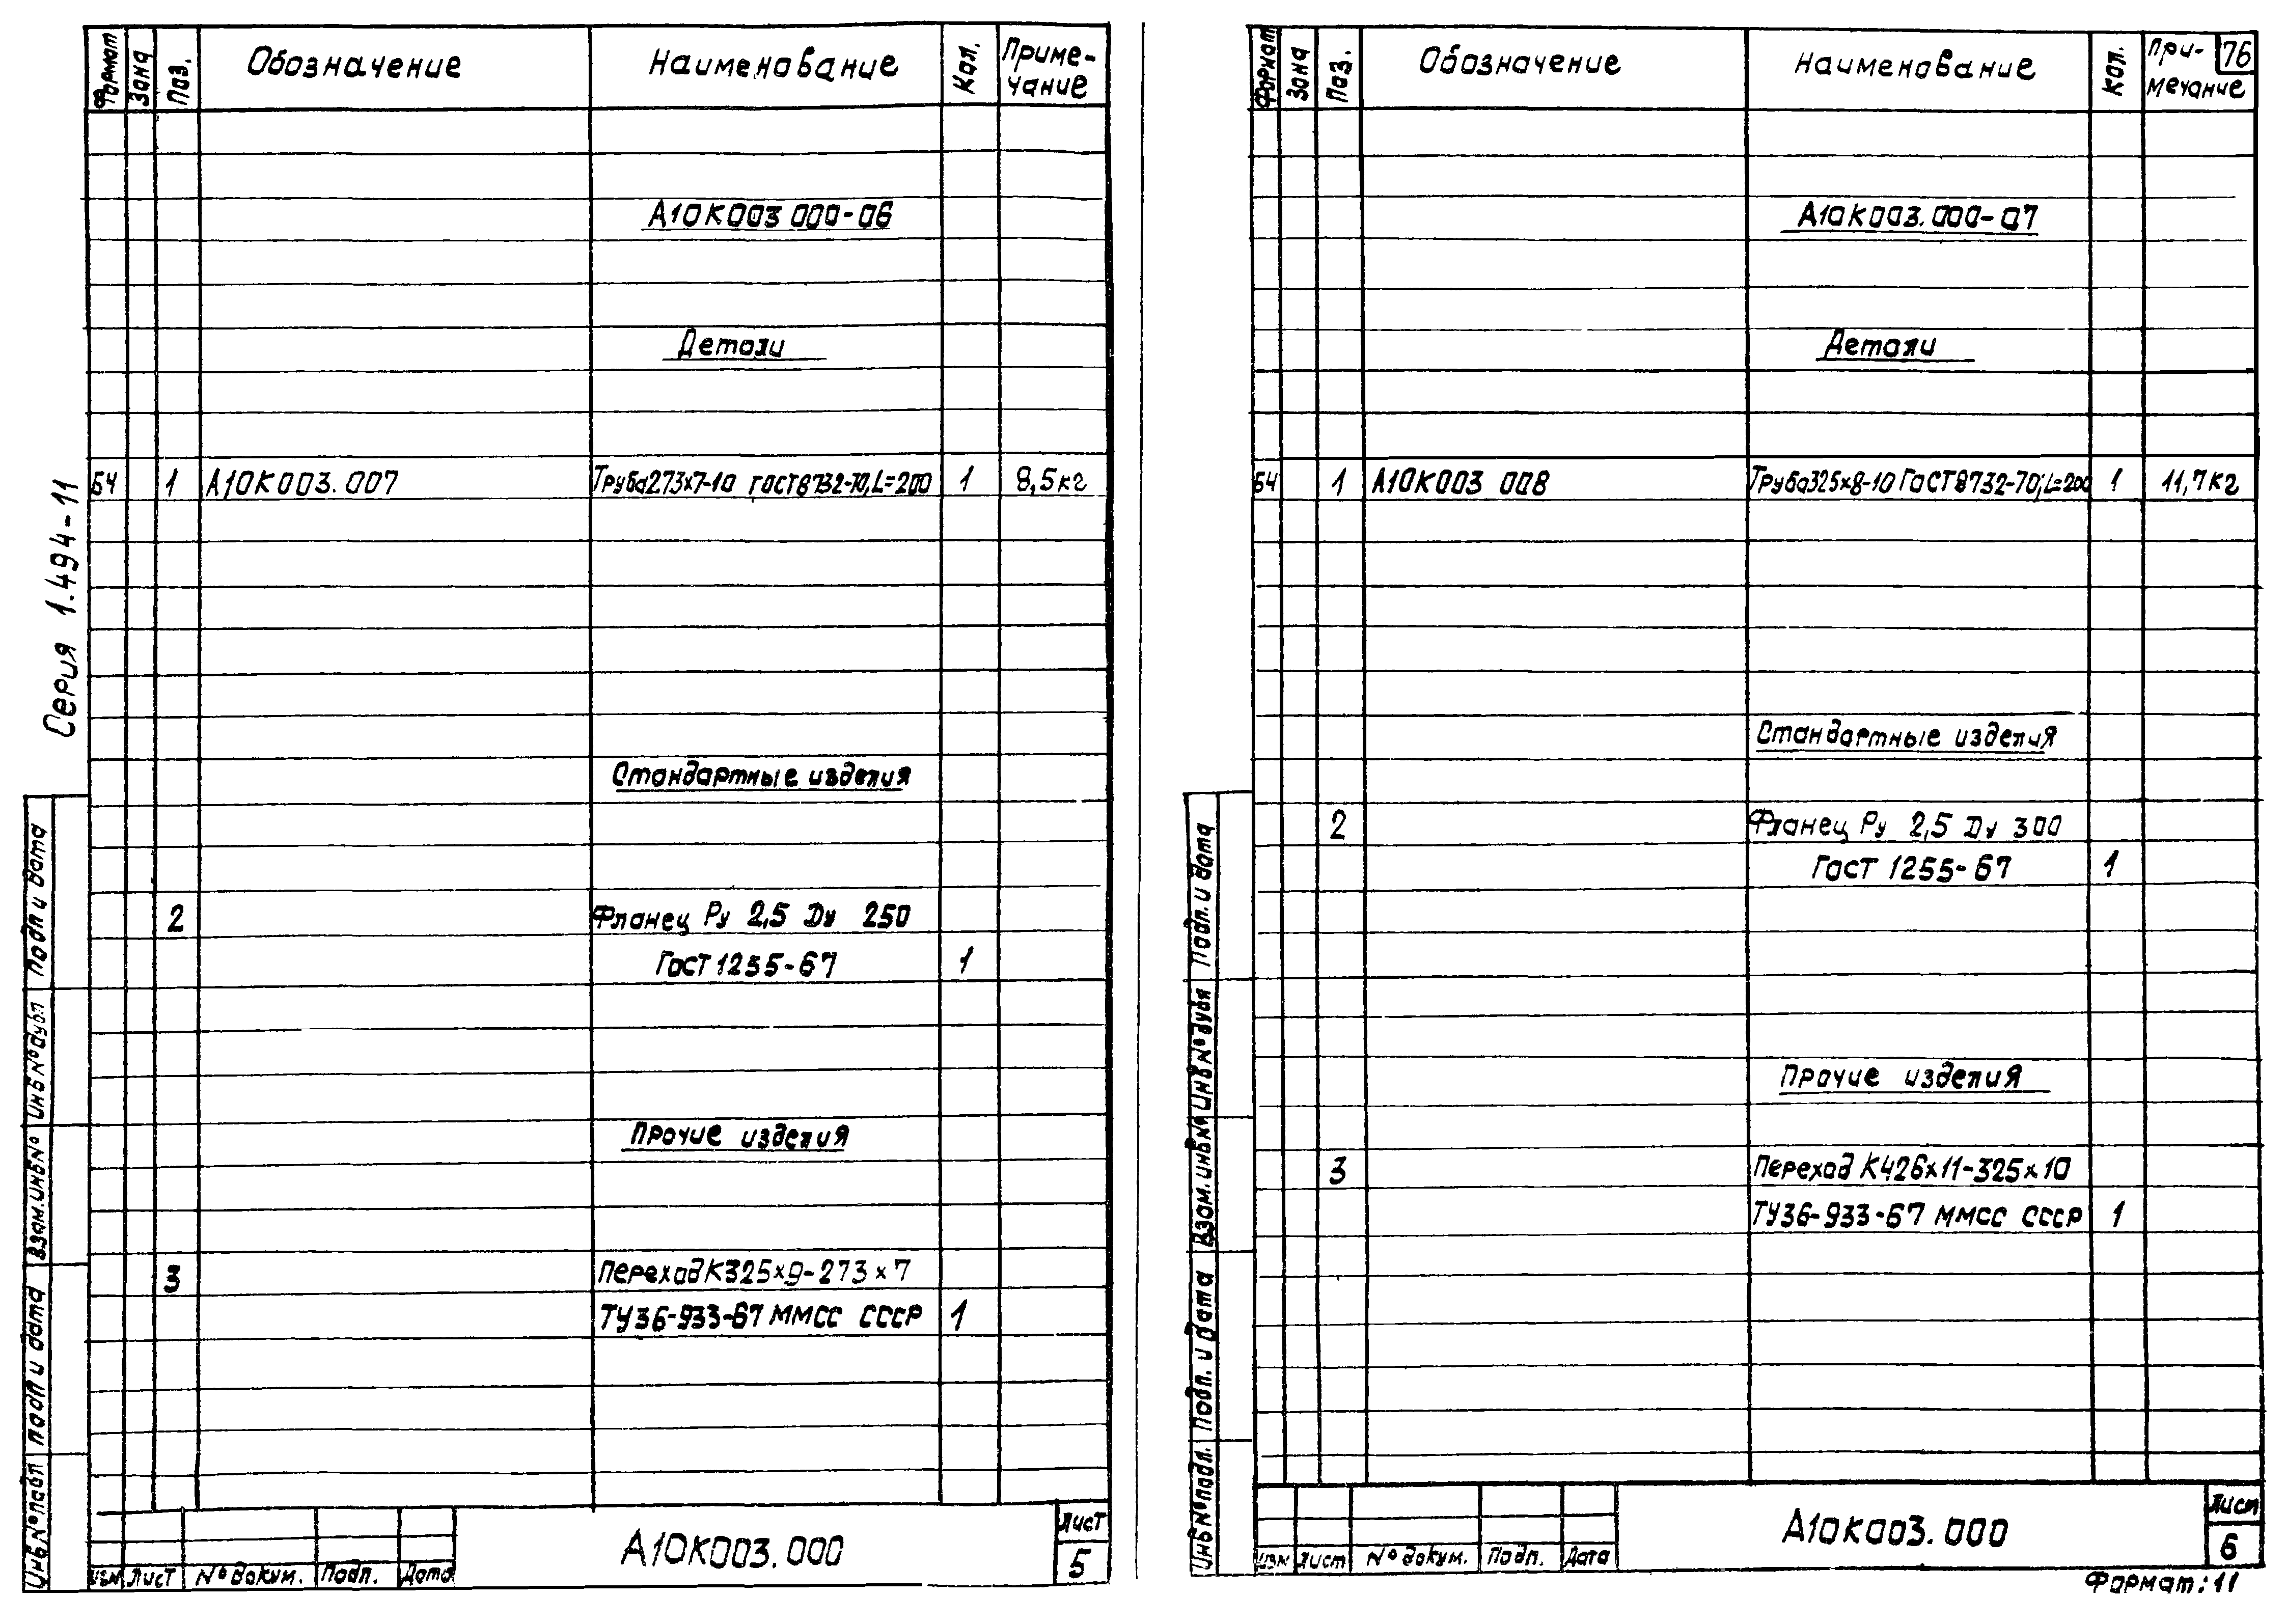 Формат Зона Поз. Обозначение Наименование Кол. Приме-
чание
А10К003 000-06
Детали
БЧ 1 А10К003.007 Труба273х7-10 ГОСТ8732-70,L=200 1 8,5кг
Стандартные изделия
2 Фланец Ру 2,5 Ду 250
ГОСТ 1255-67 1
Прочие изделия
3 Переход К325х9-273х7
ТУ36-933-67 ММСС СССР 1
Серия 1.494-11
Подп и дата
Инв№дубл
Взам.инв№
подп и дата
Инв№подл
Изм Лист № докум. Подп. Дата
А10К003.000
Лист
5
Формат Зона Поз. Обозначение Наименование Кол. При-
мечание
76
А10К003.000-07
Детали
БЧ 1 А10К003 008 Труба325х8-10 ГОСТ8732-70;L=200 1 11,7кг
Стандартные изделия
2 Фланец Ру 2,5 Ду 300
ГОСТ 1255-67 1
Прочие изделия
3 Переход К426х11-325х10
ТУ36-933-67 ММСС СССР 1
Подп. и дата
Инв№дубл
Взам.инв№
Подп. и дата
Инв№подл.
Изм Лист № докум. Подп. Дата
А10К003.000
Лист
6
Формат:11